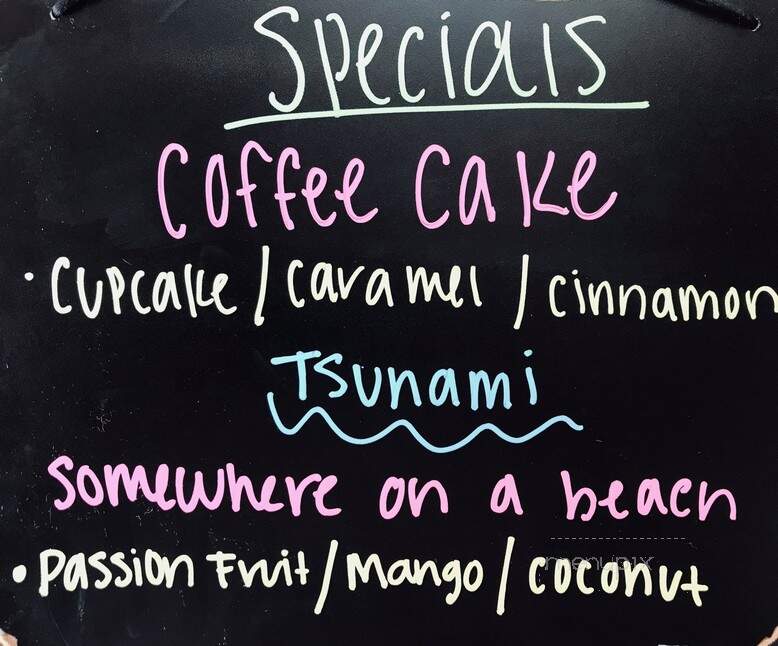 Specials
Coffee Cake
• Cupcake / caramel / cinnamon
Tsunami
Somewhere on a beach
• Passion Fruit / Mango / coconut
menupix